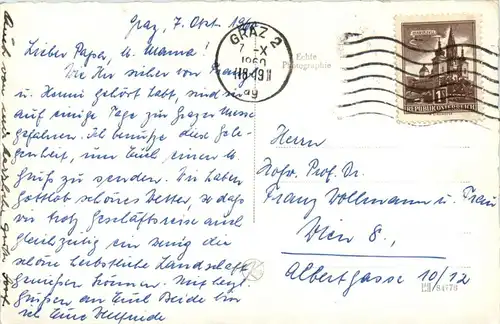 Graz, 7. Okt. 1960
Lieber Papa, u. Mama!
Wie Ihr sicher von Franz
u. Henni gehört habt, sind wir
auf einige Tage zur Grazer Messe
gefahren. Ich benutze diese Gele-
genheit, um Euch einen
Gruß zu senden. Wir haben
Gottlob schönes Wetter, so daß
wir trotz Geschäftsreise auch
gleichzeitig ein wenig die
schöne herbstliche Landschaft
genießen können. Mit herzl.
Grüßen an Euch Beide bin
ich Eure Helfriede
Auch von mir herzliche Grüße
GRAZ 2
7.-X
1960
18-19
Echte
Photographie
REPUBLIK ÖSTERREICH
Herrn
Hofr. Prof. Dr.
Franz Vollmann u. Frau
Wien 8.,
Albertgasse 10/12